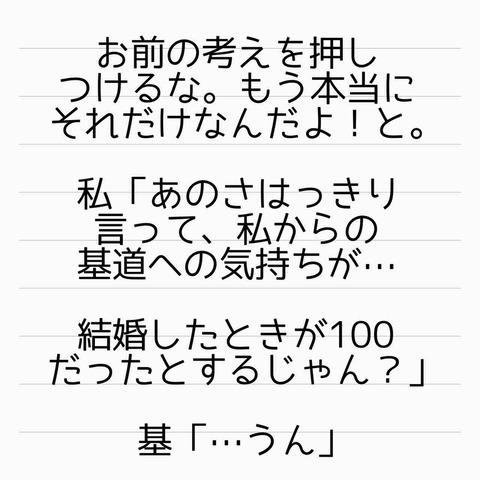 お前の考えを押し
つけるな。もう本当に
それだけなんだよ！と。
私「あのさはっきり
言って、私からの
基道への気持ちが…
結婚したときが100
だったとするじゃん？」
基「…うん」